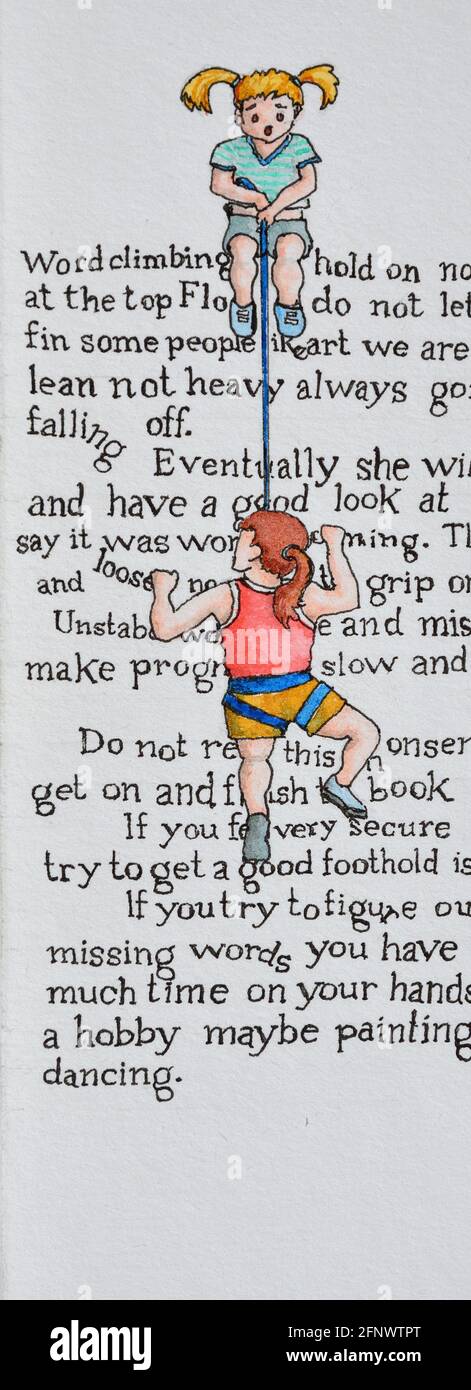 Word climbing hold on no
at the top Flo do not let
fin some people like art we are
lean not heavy always go
falling off.
Eventually she wil
and have a good look at
say it was wor ning. Th
and loose no grip or
Unstab wo e and mis
make progr slow and
Do not re this nonsen
get on and finish book
If you fe very secure
try to get a good foothold is
If you try to figure ou
missing words you have
much time on your hands
a hobby maybe painting
dancing.
alamy
Image ID: 2FNWTPT
www.alamy.com